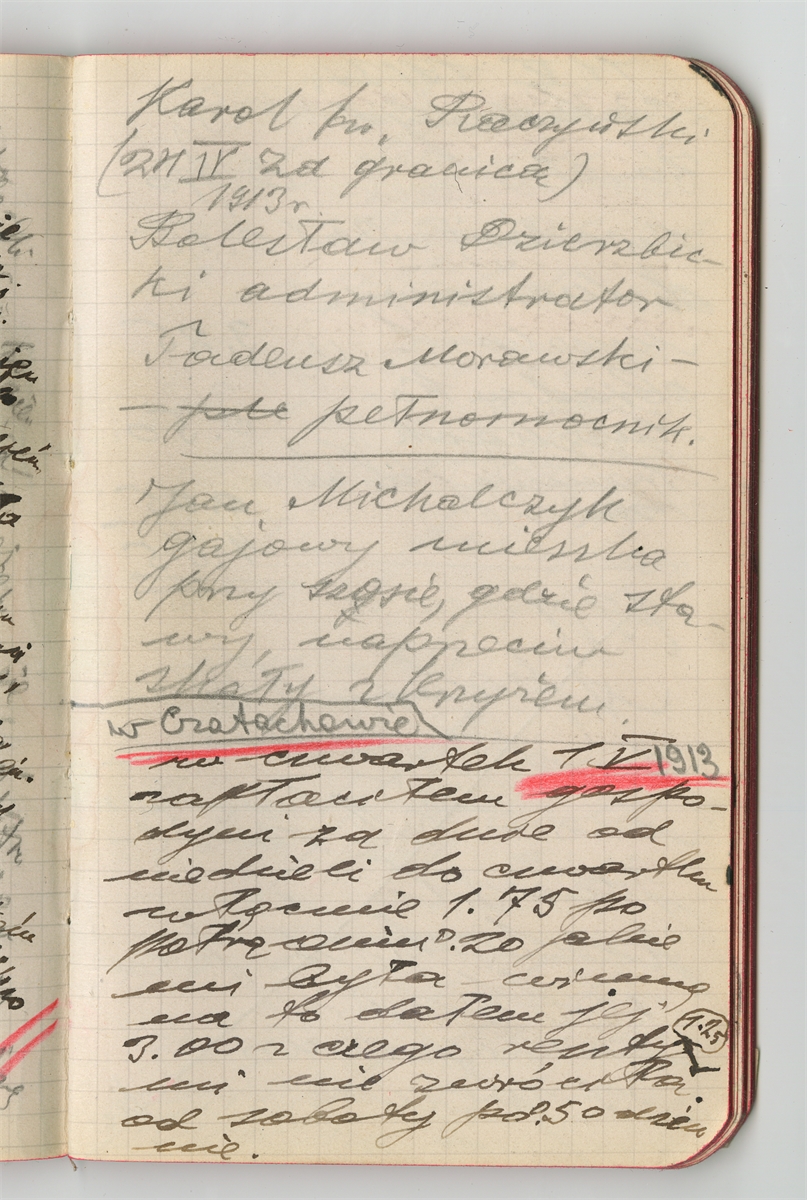 Karol hr. Raczyński
(24 IV za granicą)
1913 r.
Bolesław Dzierzbic-
ki administrator
Tadeusz Morawski –
– pełnomocnik.
Jan Michalczyk
gajowy mieszka
przy szosie, gdzie sta-
wy, naprzeciw
skały z krzyżem.
w Czatachowie
w czwartek 1 V 1913
zapłaciłem gospo-
dyni za dnie od
niedzieli do czwartku
włącznie 1.75 po
potrąceniu 0.20 jakie
mi była winna
na to dałem jej
3.00 z czego reszty 1.25
mi nie zwróciła.
od soboty po 0.50 dzien
nie.